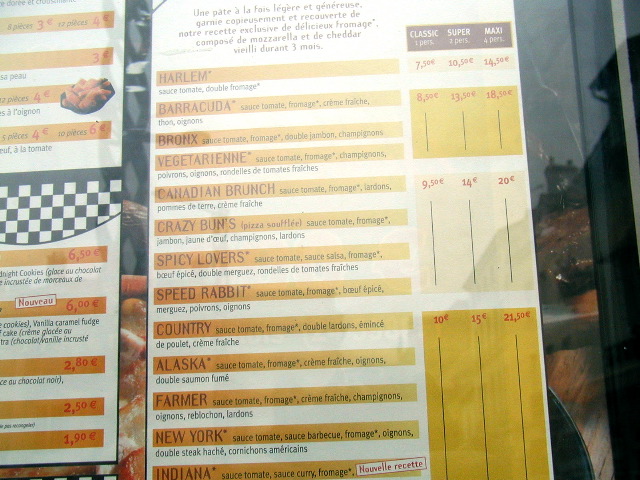 8 pièces 3€ 12 pièces 4€
3€
sa peau
12 pièces 4€
es à l'oignon
5 pièces 4€ 10 pièces 6€
euf, à la tomate
6,50€
dnight Cookies (glace au chocolat
e incrustée de morceaux de
Nouveau
6,00€
e cookies), Vanilla caramel fudge
f cake (crème glacée au
tra (chocolat/vanille incrusté
2,80€
ce au chocolat noir),
2,50€
1,90€
Une pâte à la fois légère et généreuse,
garnie copieusement et recouverte de
notre recette exclusive de délicieux fromage*,
composé de mozzarella et de cheddar
vieilli durant 3 mois.
CLASSIC SUPER MAXI
1 pers. 2 pers. 4 pers.
HARLEM* 7,50€ 10,50€ 14,50€
sauce tomate, double fromage*
BARRACUDA* sauce tomate, fromage*, crème fraîche, 8,50€ 13,50€ 18,50€
thon, oignons
BRONX sauce tomate, fromage*, double jambon, champignons
VEGETARIENNE* sauce tomate, fromage*, champignons,
poivrons, oignons, rondelles de tomates fraîches
CANADIAN BRUNCH sauce tomate, fromage*, lardons, 9,50€ 14€ 20€
pommes de terre, crème fraîche
CRAZY BUN'S (pizza soufflée) sauce tomate, fromage*,
jambon, jaune d'œuf, champignons, lardons
SPICY LOVERS* sauce tomate, sauce salsa, fromage*,
bœuf épicé, double merguez, rondelles de tomates fraîches
SPEED RABBIT* sauce tomate, fromage*, bœuf épicé,
merguez, poivrons, oignons
COUNTRY sauce tomate, fromage*, double lardons, émincé 10€ 15€ 21,50€
de poulet, crème fraîche
ALASKA* sauce tomate, fromage*, crème fraîche, oignons,
double saumon fumé
FARMER sauce tomate, fromage*, crème fraîche, champignons,
oignons, reblochon, lardons
NEW YORK* sauce tomate, sauce barbecue, fromage*, oignons,
double steak haché, cornichons américains
INDIANA* sauce tomate, sauce curry, fromage*, Nouvelle recette